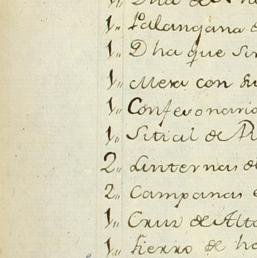 1,, Palangana
1,, D ha que
1,, Mesa con
1,, Confesonario
1,, Sitial de
2,, Linternas de
2,, Campanas
1,, Cruz de Alta
1,, fierro de ha